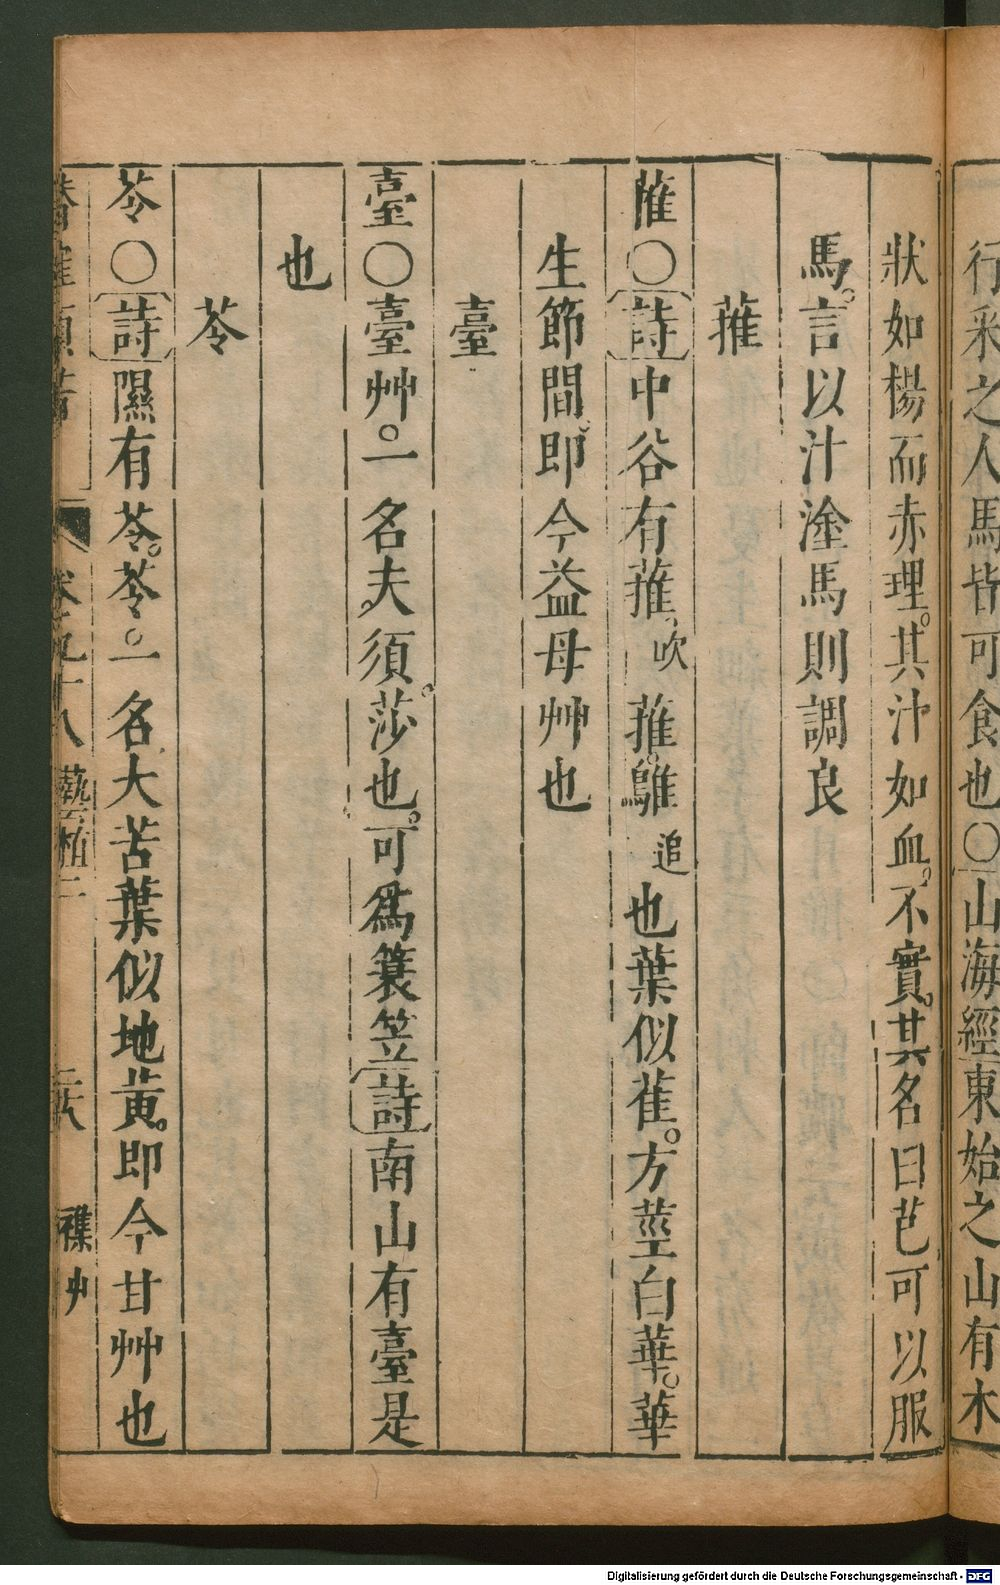 行采之人馬皆可食也〇山海經東始之山有木
狀如楊而赤理其汁如血不實其名曰芑可以服
馬言以汁塗馬則調良
蓷
蓷〇詩中谷有蓷吹蓷鵻追也葉似萑方莖白華華
生節間即今益母艸也
臺
臺〇臺艸一名夫須莎也可爲簑笠詩南山有臺是
也
苓
苓〇詩隰有苓苓一名大苦葉似地黄即今甘艸也
卷九十八 藝植二 二六 襍艸
Digitalisierung gefördert durch die Deutsche Forschungsgemeinschaft - DFG